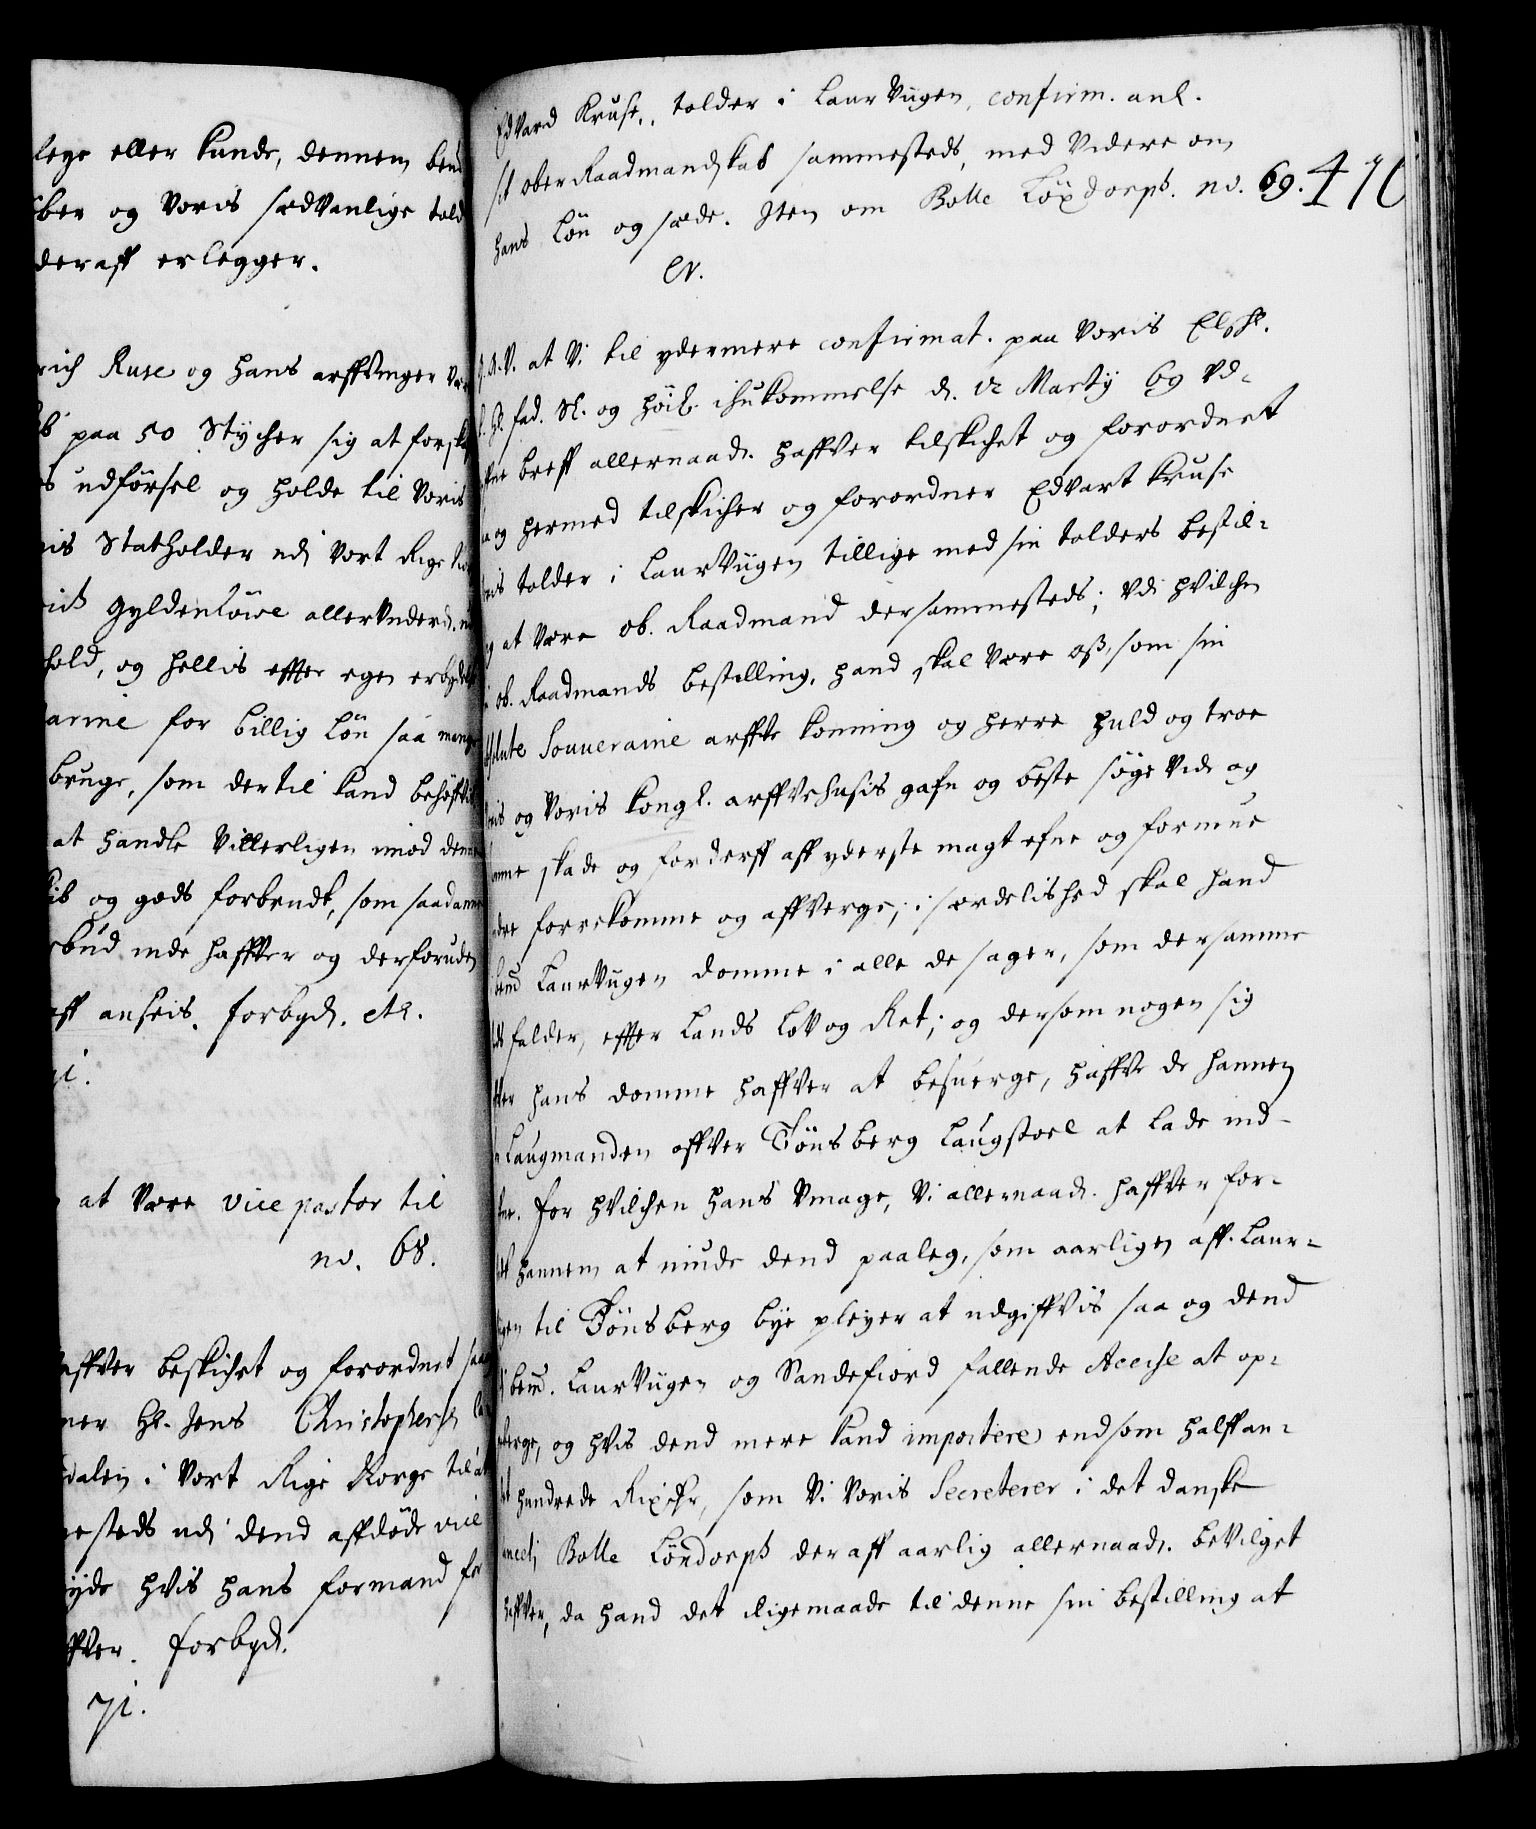 lege eller kunde, dennem
og Voris sædvanlige told
deraff erlegger.
Ruse og hans arffvinger
paa 50 Stycher sig at
udførsel og holde til Voris
Statholder udj Vort Rige
Gyldenløwe allerunderd.
hold, og hellis effter egen
for billig Løn saa mange
bruge, som dertil kand
at handle Villerligen imod denne
og gods forbrudt, som saadanne
inde haffver og derforuden
anseis. forbyd. etc.
71.
at være vice pastor til
no. 68.
haffver beskichet og forordnet
Hr. Jens Christophersen
i Vort Rige Norge til
udj dend affdøde vice
hvis hans formand
forbyd.
71.
Edvard Kruse, tolder i LaurVügen, confirm. anl.
sit ober Raadmandskab sammesteds, med Videre om
hans Løn og sæde. Item om Bolle Løxdorph. no. 69. 470
CV.
G. A. V. at Vi til ydermere confirmat. paa Voris Elskl.
fad. Sl. og Høil. ihukommelse d. 12 Martij 69 Vd-
breff allernaad. haffver tilskichet og forordnet
og hermed tilskicher og forordner Edvart Kruse
tolder i LaurVügen tillige med sin tolders bestil-
at være ob. Raadmand dersammesteds; Vdi hvilchen
ob. Raadmands bestilling, hand skal være oss, som sin
absolute Souveraine arffve konning og herre huld og troe
Voris og Voris kongl. arffvehusis gafn og beste søge Vide og
skade og forderff aff yderste magt efne og formue
forrekomme og affverge; i særdelished skal hand
LaurVügen domme i alle de sager, som dersamme
falder, effter Lands Lov og Ret; og dersom nogen sig
hans domme haffver at besuerge, haffve de hannem
Laugmanden offver Tønsberg Laugstoel at lade ind-
for hvilchen hans Vmage, Vi allernaad. haffver for-
hannem at niude dend paaleg, som aarligen aff Laur-
til Tønsberg bye pleyer at udgiffvis saa og dend
bem. LaurVügen og Sandefiord fallende Accise at op-
og hvis dend mere kand importere end som halffan-
hundrede Rixdlr, som Vi Voris Secreterer i det danske
Bolle Løxdorph deraff aarlig allernaad. beVilget
haffver, da hand det ligemaade til denne sin bestilling at